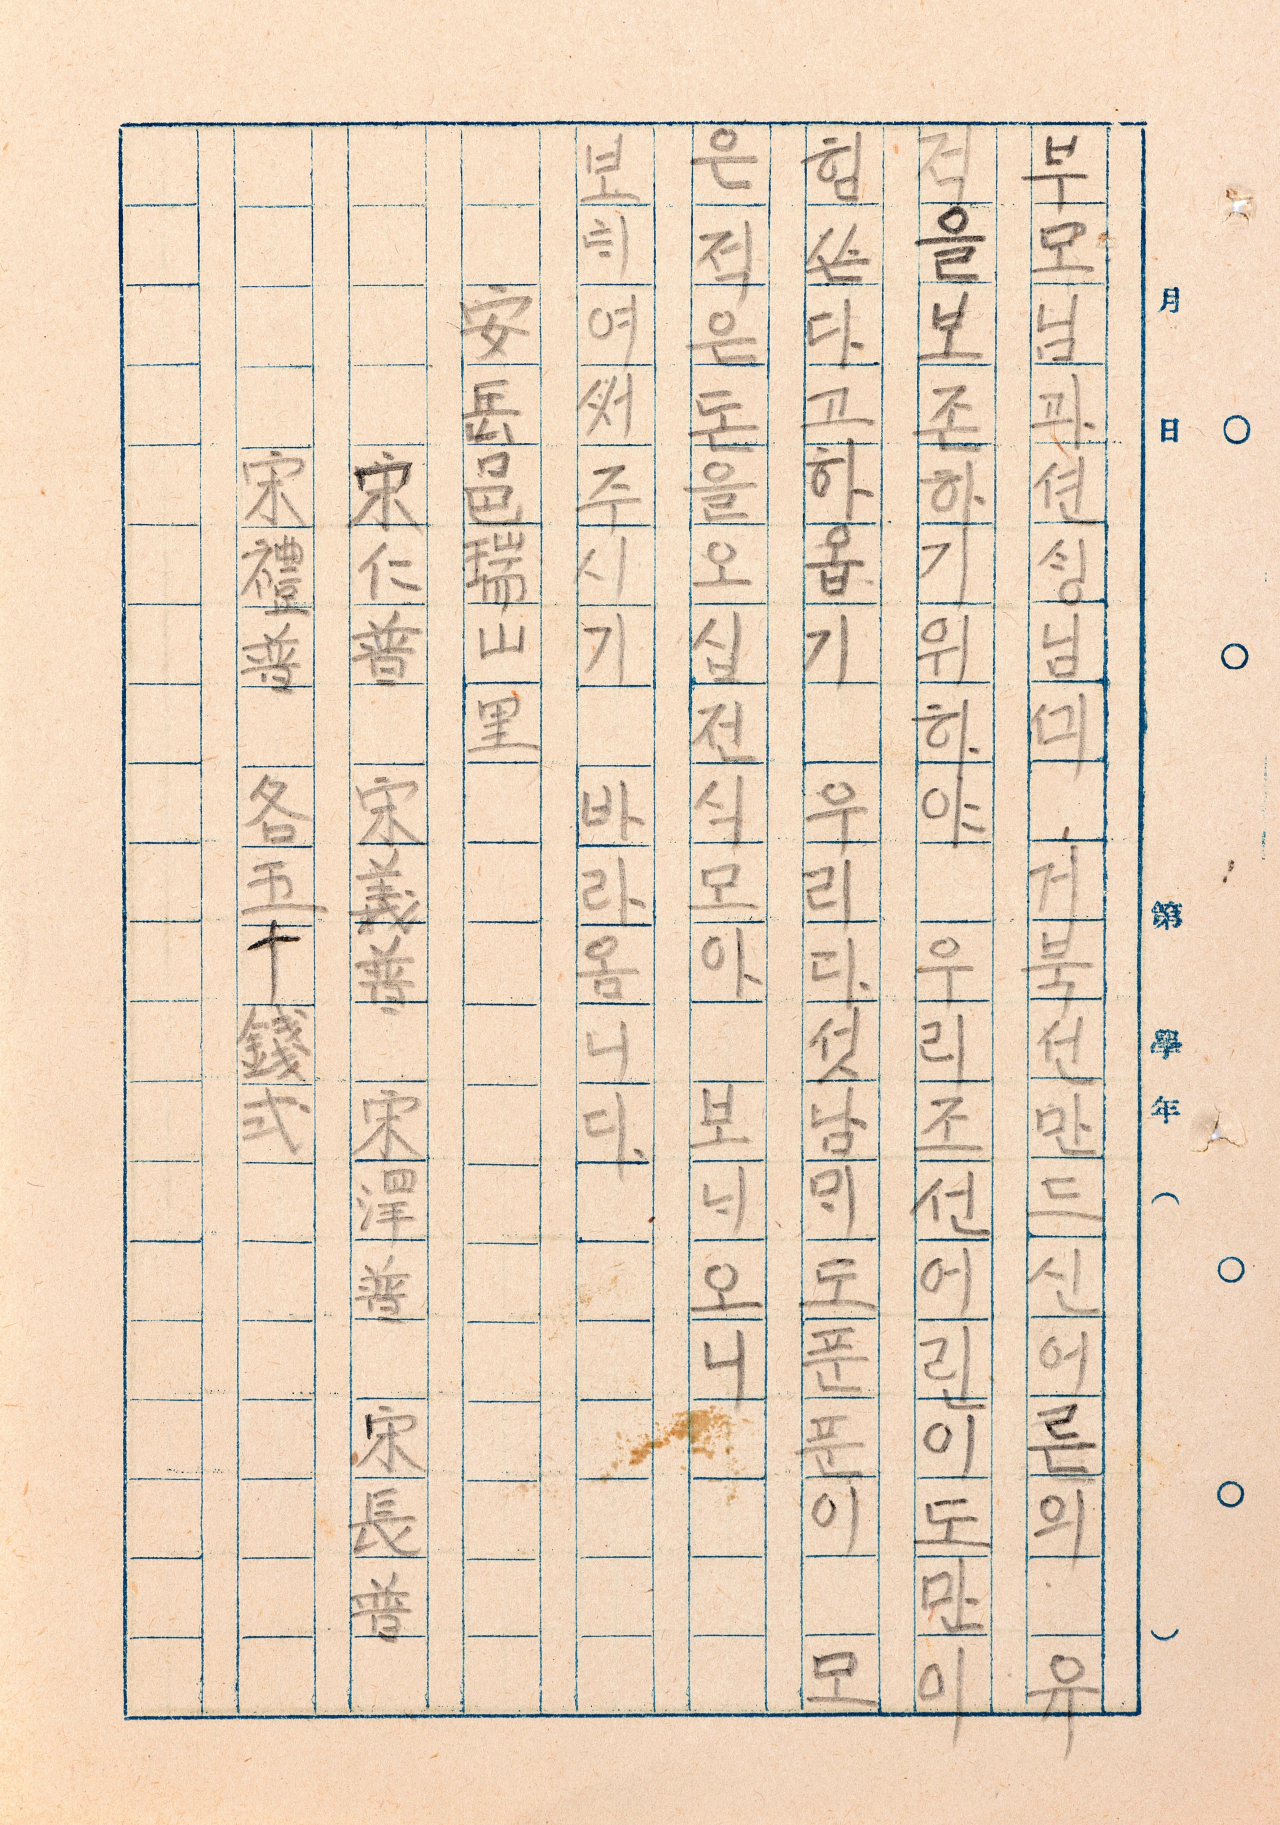 月 日 第 學年 ( )
부모님과션싱님ᄭᅴ 저북선만드신어룬의 유
적을보존하기위하야 우리조선어린이도만이
힘쓴다고하옵기 우리다섯남ᄆᆡ도푼푼이 모
은적은돈을오십전식모아 보ᄂᆡ오니
보ᄐᆡ여써주시기 바라옴니다
安岳邑瑞山里
宋仁普 宋義普 宋澤普 宋長普
宋禮普 各五十錢式